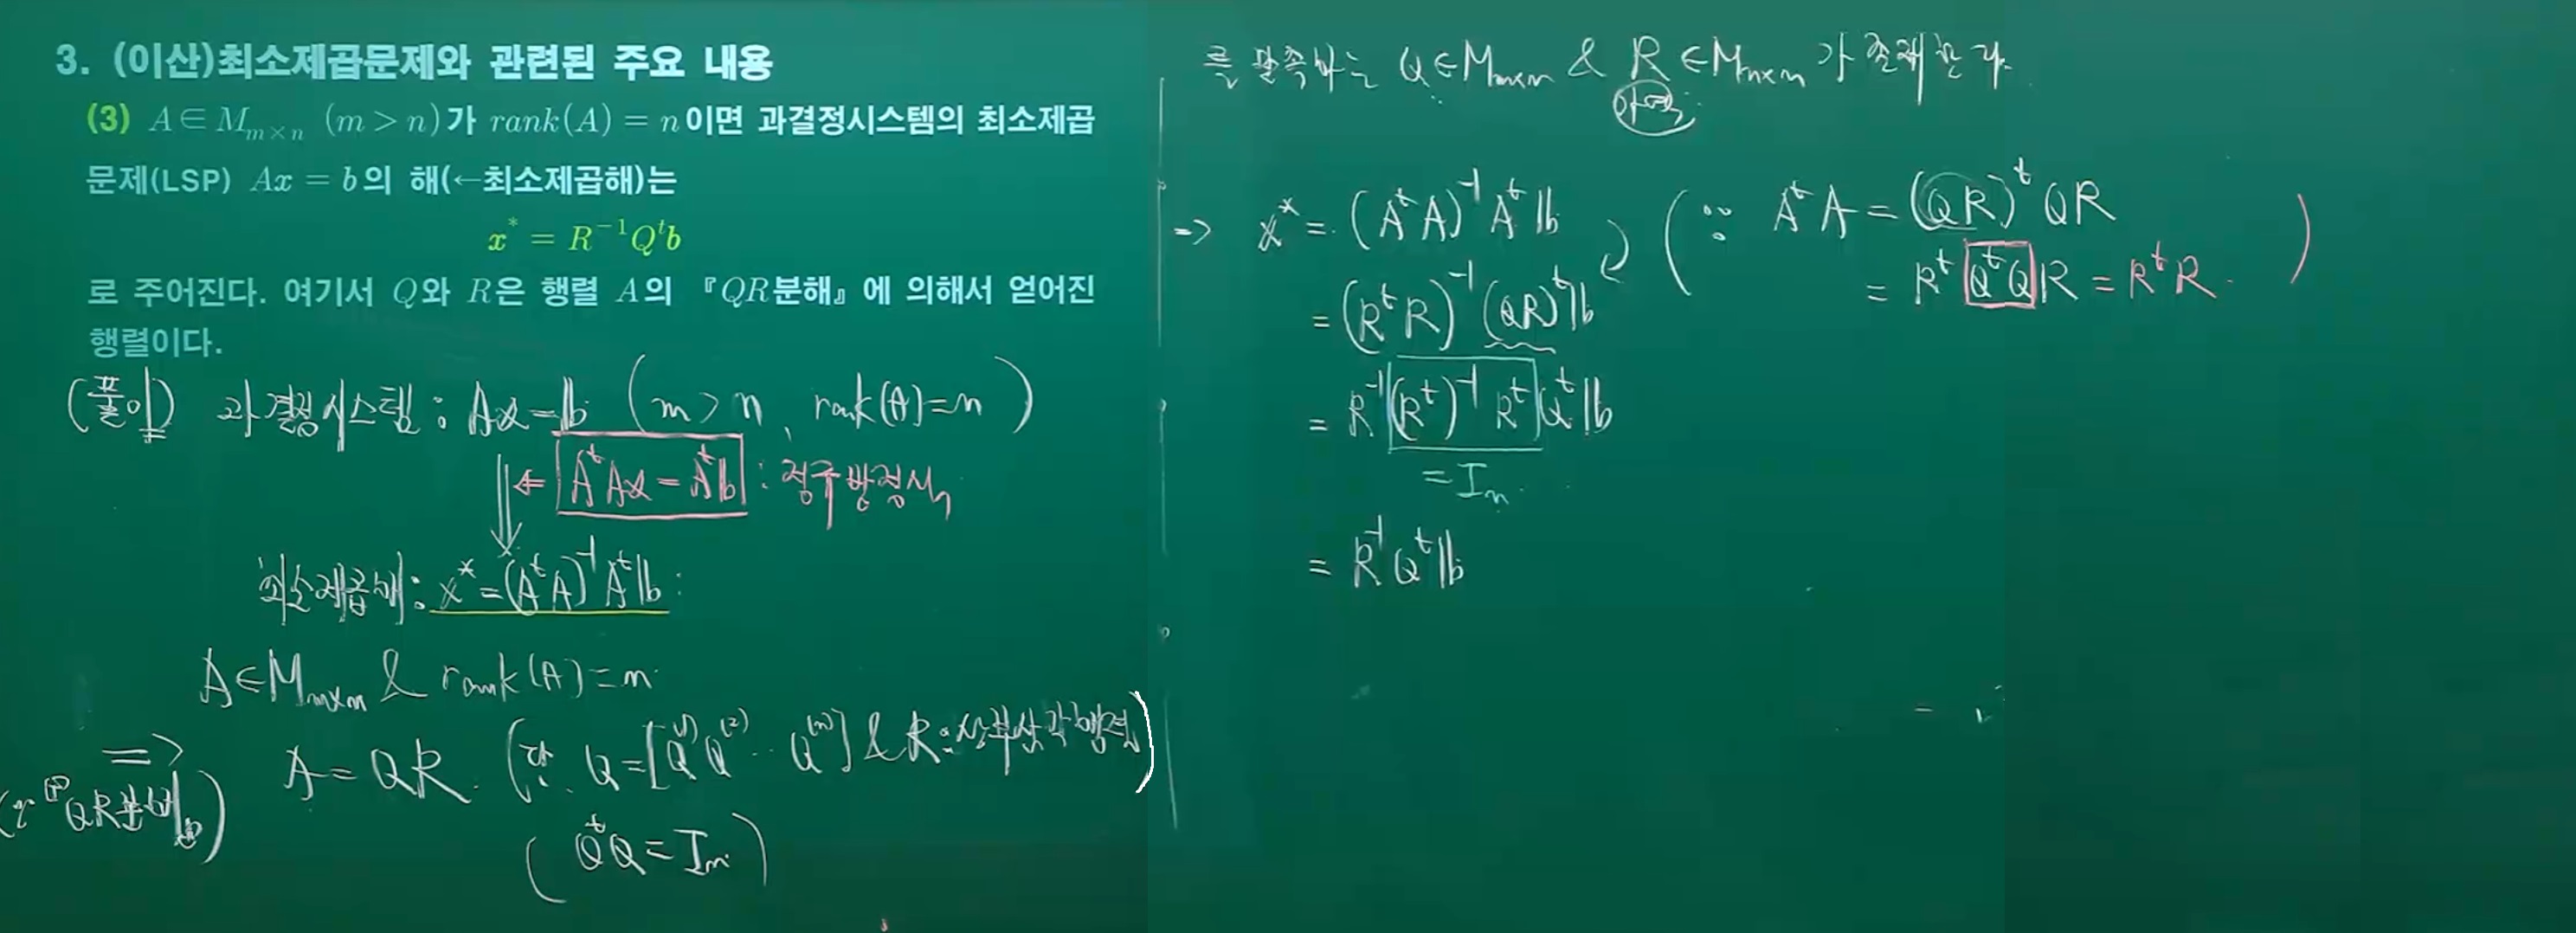 3. (이산)최소제곱문제와 관련된 주요 내용
(3) A∈M_{m×n} (m>n)가 rank(A)=n이면 과결정시스템의 최소제곱
문제(LSP) Ax=b의 해(←최소제곱해)는
x^* = R^{-1}Q^t b
로 주어진다. 여기서 Q와 R은 행렬 A의 『QR분해』에 의해서 얻어진
행렬이다.
(풀이) 과결정시스템 : Ax=b (m>n, rank(A)=n)
⇓ ← A^tAx=A^tb : 정규방정식
최소제곱해 : x^*=(A^tA)^{-1}A^tb :
A∈M_{m×n} & rank(A)=n.
⇒ A=QR. (단, Q=[Q^{(1)} Q^{(2)} ⋯ Q^{(n)}] & R:상부삼각행렬)
(∵ QR분해)
(Q^tQ=I_n)
를 만족하는 Q∈M_{m×n} & R∈M_{n×n}가 존재한다.
가역
⇒ x^*=(A^tA)^{-1}A^tb (∵ A^tA=(QR)^tQR
=(R^tR)^{-1}(QR)^tb
=R^tQ^tQR=R^tR. )
=R^{-1}(R^t)^{-1}R^tQ^tb
=I_n.
=R^{-1}Q^tb